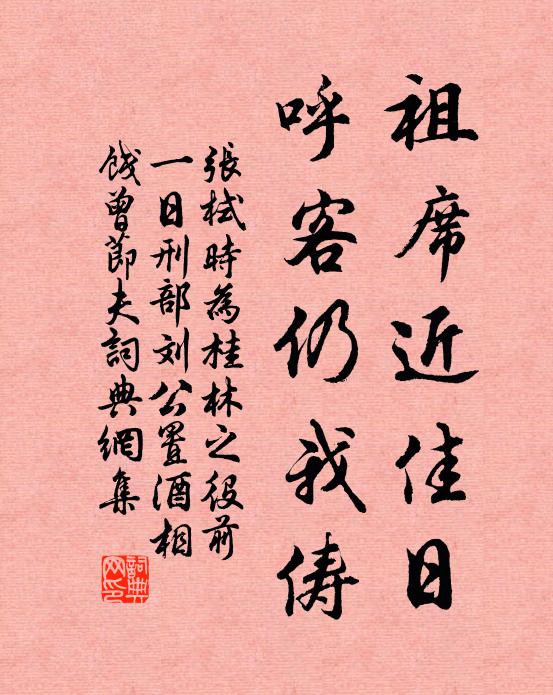 祖席近佳日
呼客仍我俦
張栻時為桂林之役前
一日刑部刘公置酒相
餞曾節夫詞典網集
詞典网印